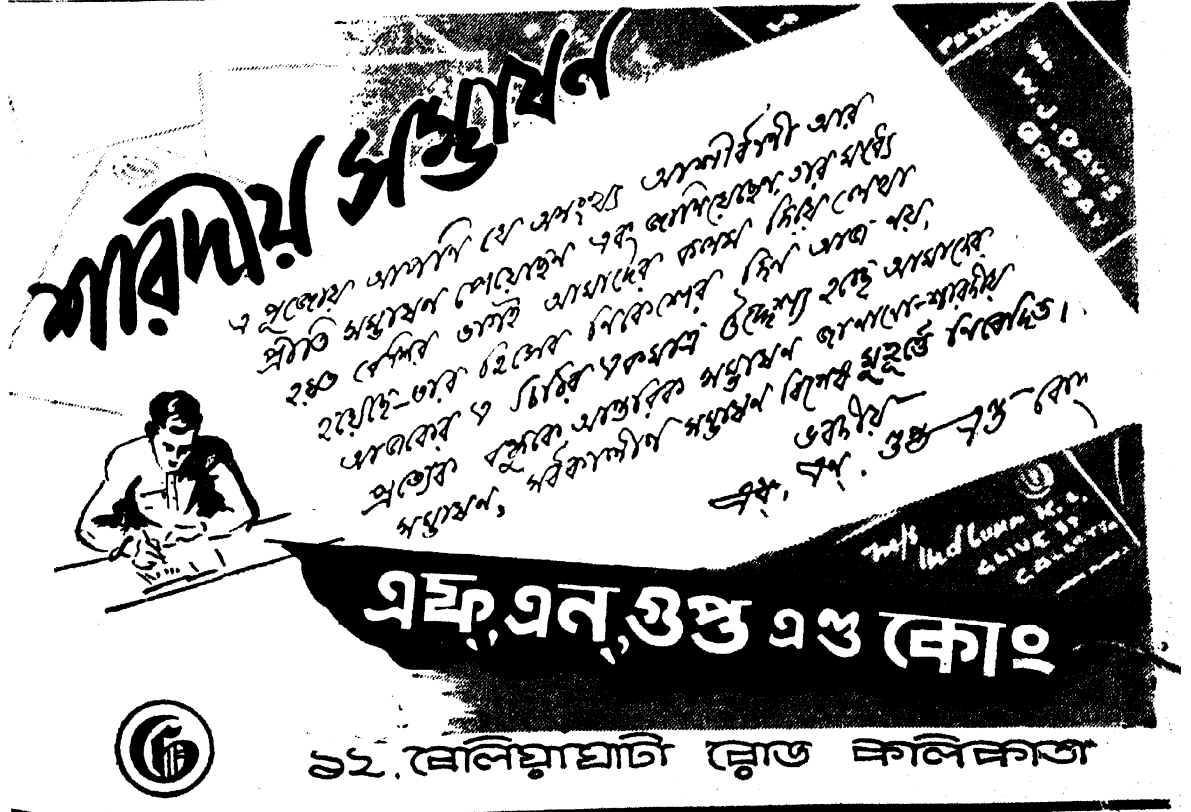 শারদীয় সম্ভাষণ
এ পূজোয় আপনি যে অসংখ্য আশীর্বাণী আর
প্রীতি সম্ভাষণ পেয়েছেন এবং জানিয়েছেন তার মধ্যে
হয়ত বেশির ভাগই আমাদের কলম দিয়ে লেখা
হয়েছে–তার হিসেব নিকেশের দিন আজ নয়,
আজকের এ চিঠির একমাত্র উদ্দেশ্য হচ্ছে আমাদের
প্রত্যেক বন্ধুকে আন্তরিক সম্ভাষণ জানানো–শারদীয়
সম্ভাষণ, সর্বকালীণ সম্ভাষণ বিশেষ মুহূর্ত্তে নিবেদিত।
ভবদীয়
এফ্. এন্. গুপ্ত এণ্ড কোং
PATNA
W. J. DAVIS
BOMBAY
M/s
CLIVE ST
CALCUTTA
এফ্, এন্, গুপ্ত এণ্ড কোং
১২, বেলিয়াঘাটা রোড কলিকাতা